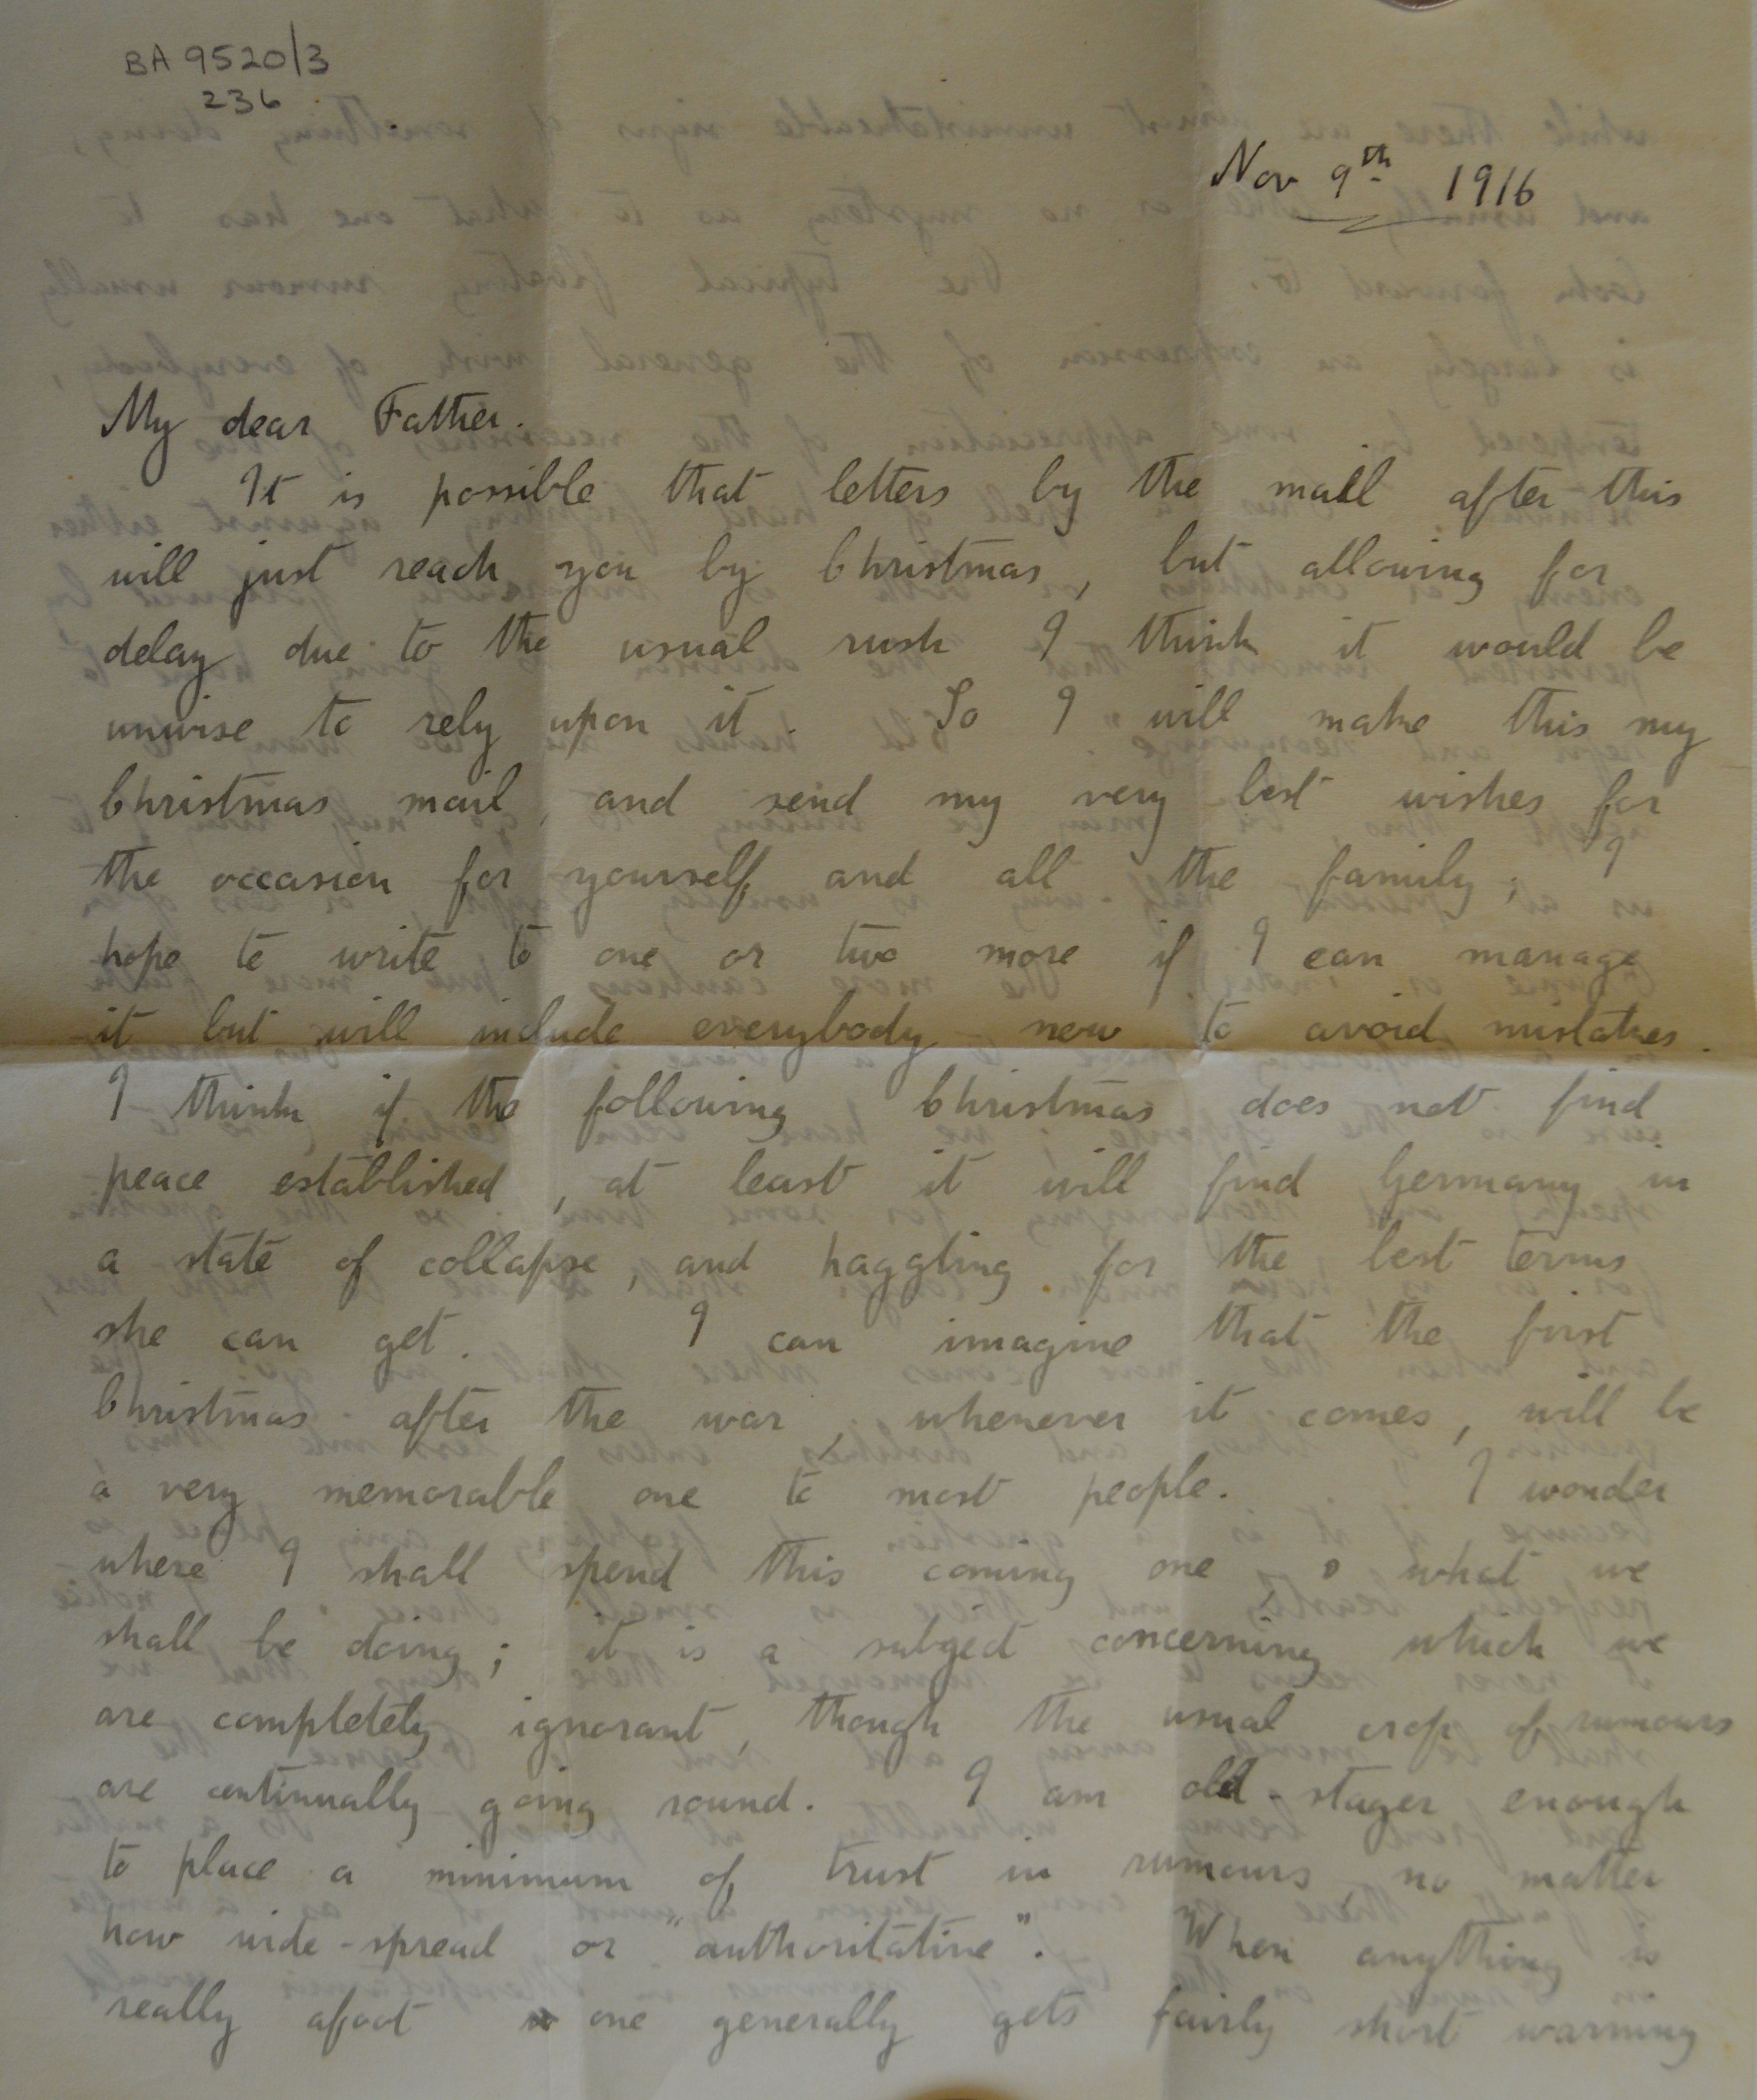 BA 9520/3
236
Nov 9th 1916
My dear Father.
It is possible that letters by the mail after this
will just reach you by Christmas, but allowing for
delay due to the usual rush I think it would be
unwise to rely upon it. So I will make this my
Christmas mail, and send my very best wishes for
the occasion for yourself and all the family; I
hope to write to one or two more if I can manage
it but will include everybody now to avoid mistakes.
I think if the following Christmas does not find
peace established, at least it will find Germany in
a state of collapse, and haggling for the best terms
she can get. I can imagine that the first
Christmas after the war, whenever it comes, will be
a very memorable one to most people. I wonder
where I shall spend this coming one, & what we
shall be doing; it is a subject concerning which we
are completely ignorant, though the usual crop of rumours
are continually going round. I am old-stager enough
to place a minimum of trust in rumours, no matter
how wide-spread or "authoritative". When anything is
really afoot one generally gets fairly short warning